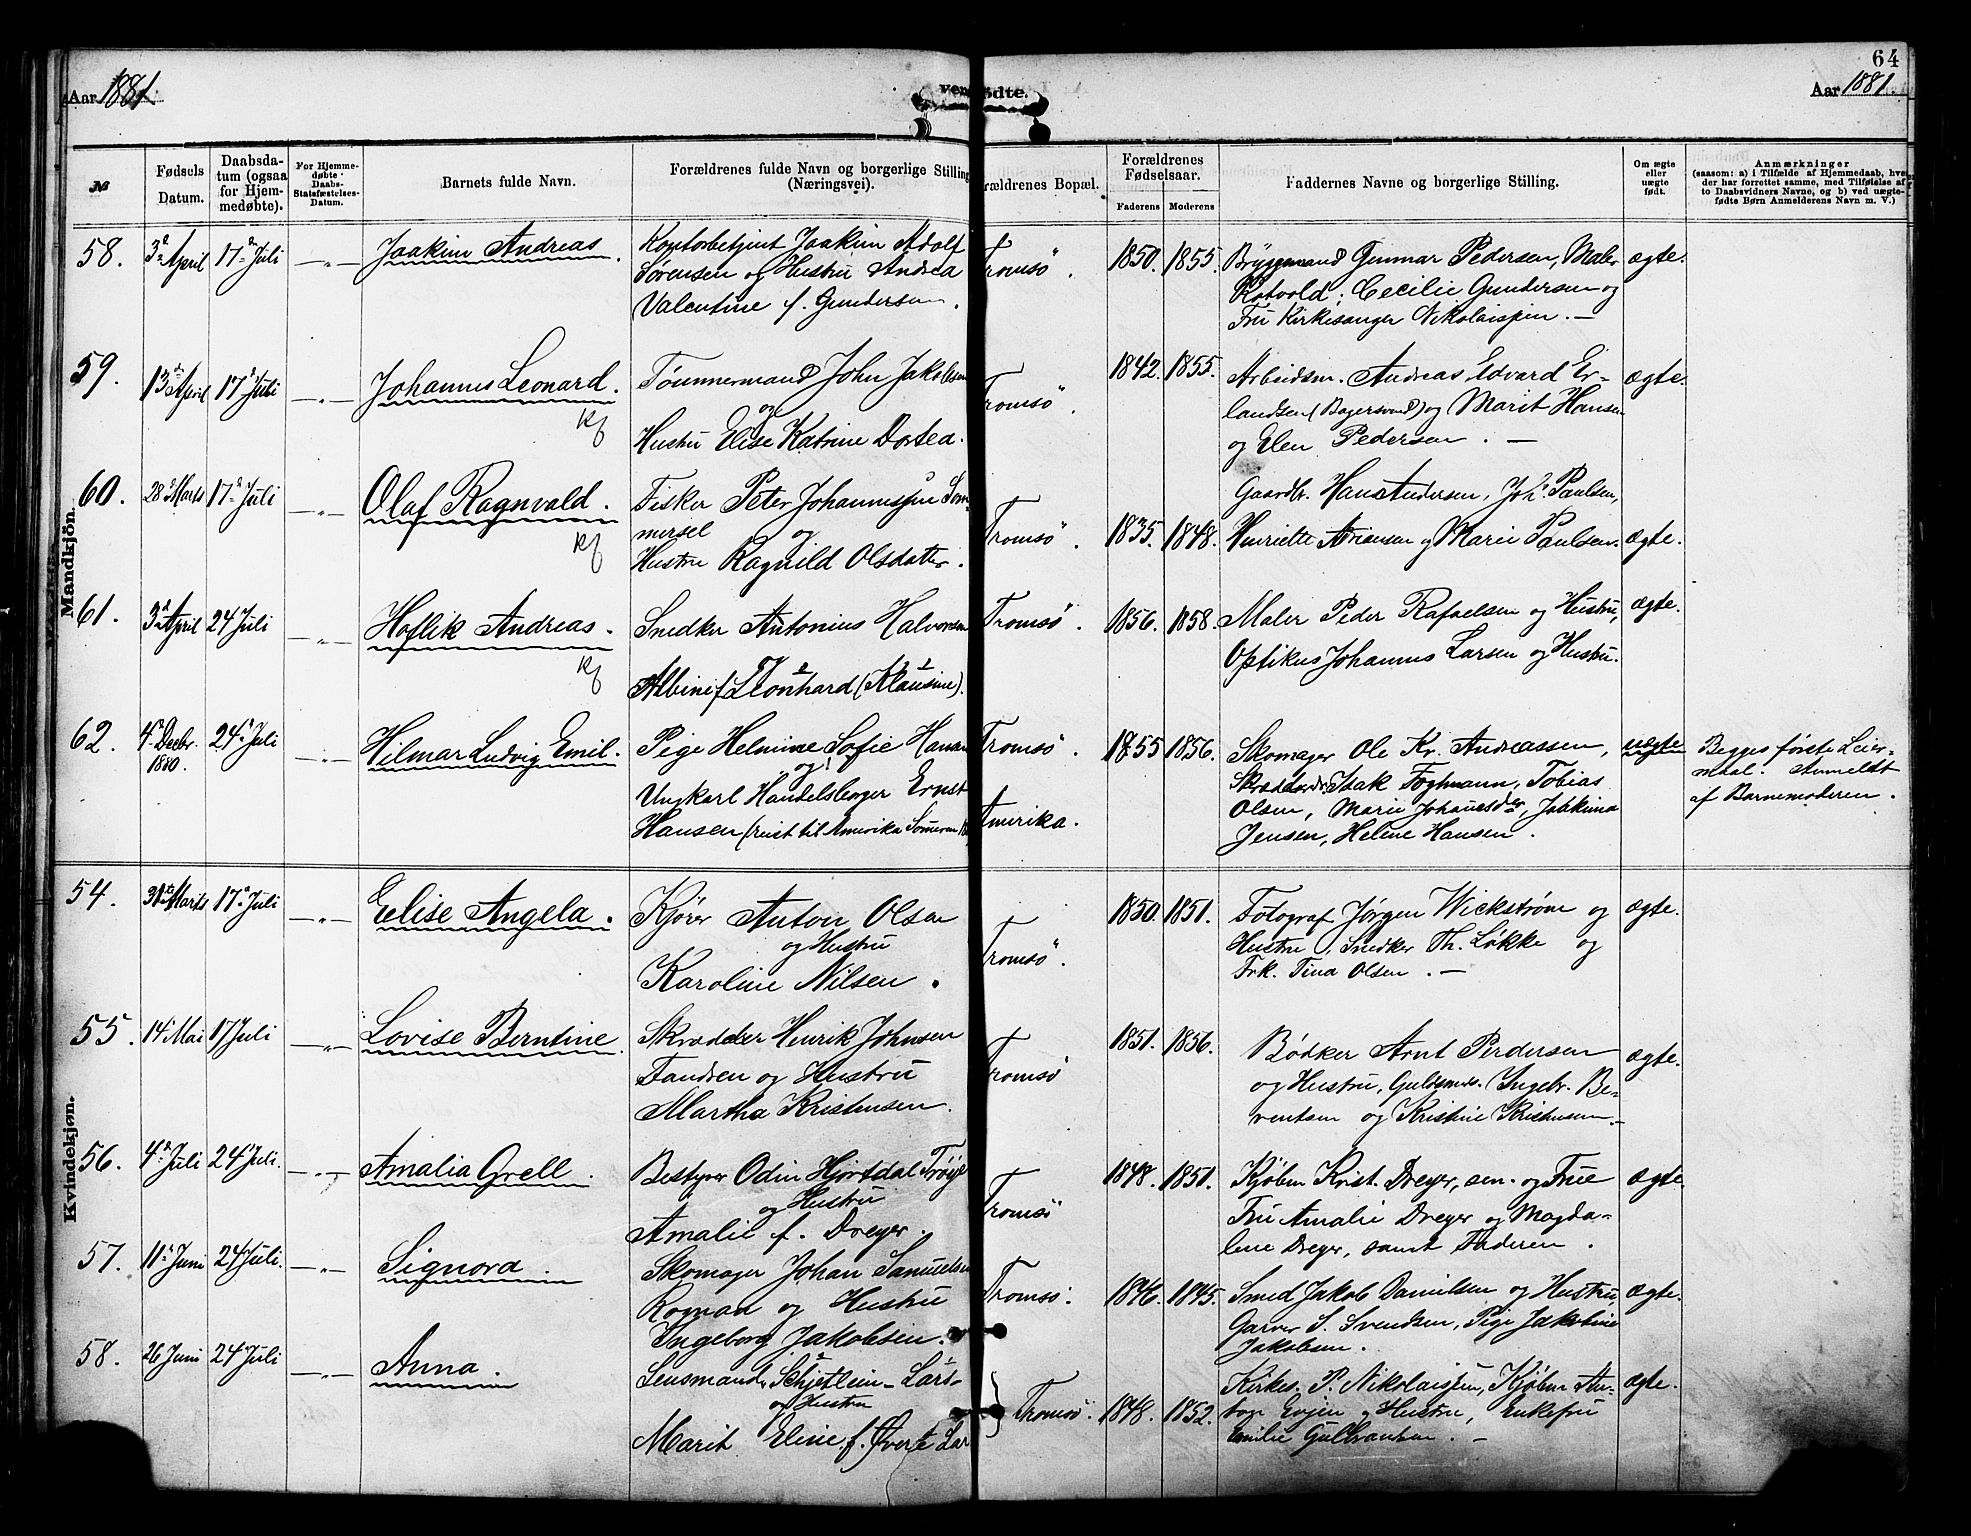 64
Aar 1881.
Levendefødte.
Aar 1881.
№
Fødsels Datum.
Daabsdatum (ogsaa for Hjemmedøbte).
For Hjemmedøbte Daabs-Stadfæstelses-Datum.
Barnets fulde Navn.
Forældrenes fulde Navn og borgerlige Stilling (Næringsvei).
Forældrenes Bopæl.
Forældrenes Fødselsaar.
Faderens
Moderens
Faddernes Navne og borgerlige Stilling.
Om ægte eller uægte født.
Anmærkninger
(saasom: a) i Tilfælde af Hjemmedaab, hvem der har forrettet samme, med Tilføielse af to Daabsvidners Navne, og b) ved uægtefødte Børn Anmelderens Navn m. V.)
Mandkjön.
58. 3die April 17de Juli —"— Joakim Andreas. Kontorbetjent Joakim Adolf
Sørensen og Hustru Andrea
Valentine f. Gundersen.
Tromsö. 1850. 1855. Bryggemand Gunnar Pedersen, Maler
Rotvold, Cecilie Gundersen og
Fru Kirkesanger Nikolaisen. —
ægte.
59. 13de April 17de Juli —"— Johannes Leonard. Tömmermand John Jakobsen
og
Hustru Elise Katrine Dortea.
Tromsö. 1842. 1855. Arbeidsm. Andreas Edvard Er-
landsen (Bagersvend) og Marit Hansen
og Elen Pedersen. —
ægte.
60. 28de Marts 17de Juli —"— Olaf Ragnvald. Fisker Peter Johannessen Som-
mersel og
Hustru Ragnild Olsdatter.
Tromsö. 1835. 1848. Gaardbr. Hans Andersen, Johs. Paulsen,
Henriette Adriansen og Marie Paulsen.
ægte.
61. 3die April 24 Juli —"— Hoflik Andreas. Snedker Antonius Halvorsen
Albine f. Leonhard (Klausine).
Tromsö. 1856. 1858. Maler Peder Rafaelsen og Hustru,
Optikus Johannes Larsen og Hustru.
ægte.
62. 4de Decbr. 1880. 24de Juli —"— Hilmar Ludvig Emil. Pige Helmine Sofie Hansen
og
Ungkarl Handelsborger Ernst
Hansen (reist til Amerika Sommeren
Tromsö.
Amerika.
1855 1856. Skomager Ole Kr. Andreassen,
Skrædder Isak Foghmann, Tobias
Olsen, Marie Johannesdr, Jakkima
Jensen, Helene Hansen.
uægte
Begges første Leier-
maal. Anmeldt
af Barnemoderen.
Kvindekjøn.
54. 31te Marts 17de Juli —"— Elise Angela. Kjører Anton Olsen
og Hustru
Karoline Nilsen.
Tromsö. 1850. 1851. Fotograf Jørgen Wickstrøm og
Hustru, Snedker Th. Løkke og
Frk. Tina Olsen. —
ægte.
55. 14 Mai 17 Juli —"— Lovise Berntine. Skrædder Henrik Johnsen
Fandrem og Hustru
Martha Kristensen.
Tromsö 1851. 1856. Bødker Arnt Perdersen
og Hustru, Guldsmed. Ingebr. Be-
rentsen og Kristine Kristensen. —
ægte.
56. 4de Juli 24de Juli. —"— Amalia Grell. Bestyrer Odin Hjortdal
og Hustru
Amalie f. Dreyer.
Tromsö 1848. 1851. Kjøbm Krist. Dreyer, sen. og Frue
Fru Amalie Dreyer og Magda-
lene Dreyer, samt Faderen.
ægte.
57. 11te Juni 24de Juli. —"— Signora. Skomager Johan Samuelsen
Roman og Hustru
Ingeborg Jakobsen.
Tromsö. 1846. 1845. Smed Jakob Danielsen og Hustru,
Garver S. Svendsen, Pige Jakobine
Jakobsen.
ægte.
58. 26 Juni 24de Juli —"— Anna. Lensmand Schjetlein- Lars-
og Hustru
Marit Eline f. Øverte Lar
Tromsö. 1848. 1852. Kirkes. P. Nikolaissen, Kjøbm An-
ton Evjen og Hustru, Enkefru
Emilie Gulbransen. —
ægte.